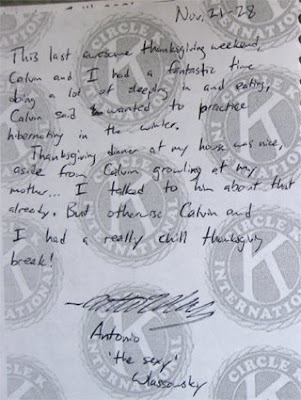 Nov. 21-28
This last awesome thanksgiving weekend,
Calvin and I had a fantastic time
doing a lot of sleeping in and eating,
Calvin said he wanted to practice
hibernating in the winter.
Thanksgiving dinner at my house was nice,
aside from Calvin growling at my
mother... I talked to him about that
already. But otherwise Calvin and
I had a really chill thanksgiving
break!
Antonio
'the sexy'
Wlassowsky
CIRCLE K
INTERNATIONAL